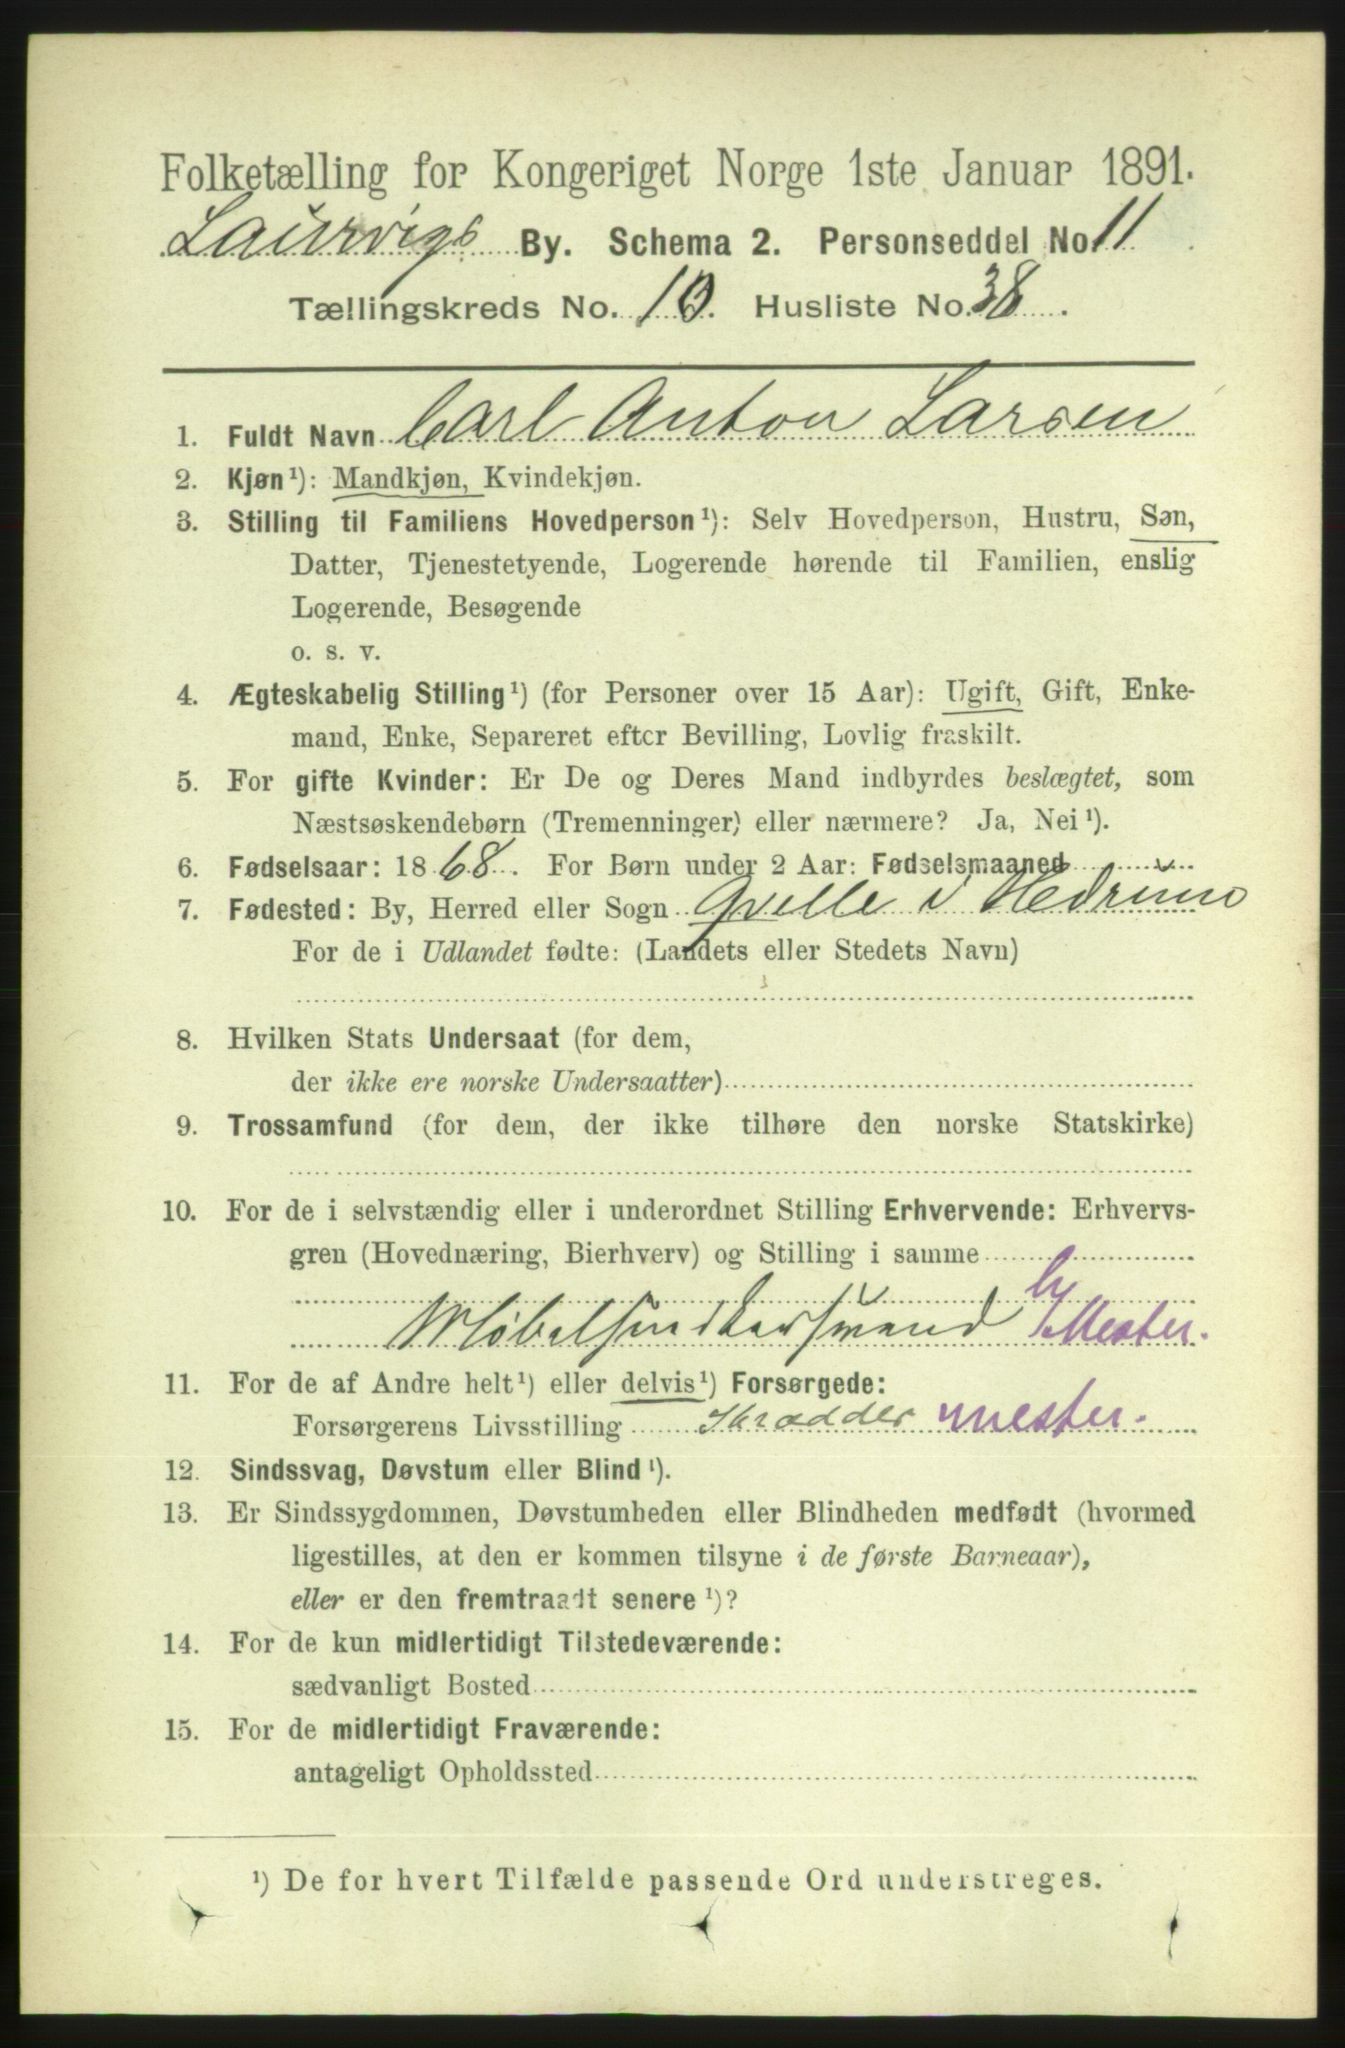 Folketælling for Kongeriget Norge 1ste Januar 1891.
Laurvigs By. Schema 2. Personseddel No. 11
Tællingskreds No. 10. Husliste No. 38.
1. Fuldt Navn Carl Anton Larsen
2. Kjøn¹): Mandkjøn, Kvindekjøn.
3. Stilling til Familiens Hovedperson¹): Selv Hovedperson, Hustru, Søn,
Datter, Tjenestetyende, Logerende hørende til Familien, enslig
Logerende, Besøgende
o. s. v.
4. Ægteskabelig Stilling¹) (for Personer over 15 Aar): Ugift, Gift, Enke-
mand, Enke, Separeret efter Bevilling, Lovlig fraskilt.
5. For gifte Kvinder: Er De og Deres Mand indbyrdes beslægtet, som
Næstsøskendebørn (Tremenninger) eller nærmere? Ja, Nei¹).
6. Fødselsaar: 1868. For Børn under 2 Aar: Fødselsmaaned
7. Fødested: By, Herred eller Sogn Qvelle i Hedrum
For de i Udlandet fødte: (Landets eller Stedets Navn)
8. Hvilken Stats Undersaat (for dem,
der ikke ere norske Undersaatter)
9. Trossamfund (for dem, der ikke tilhøre den norske Statskirke)
10. For de i selvstændig eller i underordnet Stilling Erhvervende: Erhvervs-
gren (Hovednæring, Bierhverv) og Stilling i samme
Møbelsnedkersvend by Mester.
11. For de af Andre helt¹) eller delvis¹) Forsørgede:
Forsørgerens Livsstilling Skrædder mester.
12. Sindssvag, Døvstum eller Blind¹).
13. Er Sindssygdommen, Døvstumheden eller Blindheden medfødt (hvormed
ligestilles, at den er kommen tilsyne i de første Barneaar),
eller er den fremtraadt senere¹)?
14. For de kun midlertidigt Tilstedeværende:
sædvanligt Bosted
15. For de midlertidigt Fraværende:
antageligt Opholdssted
¹) De for hvert Tilfælde passende Ord understreges.